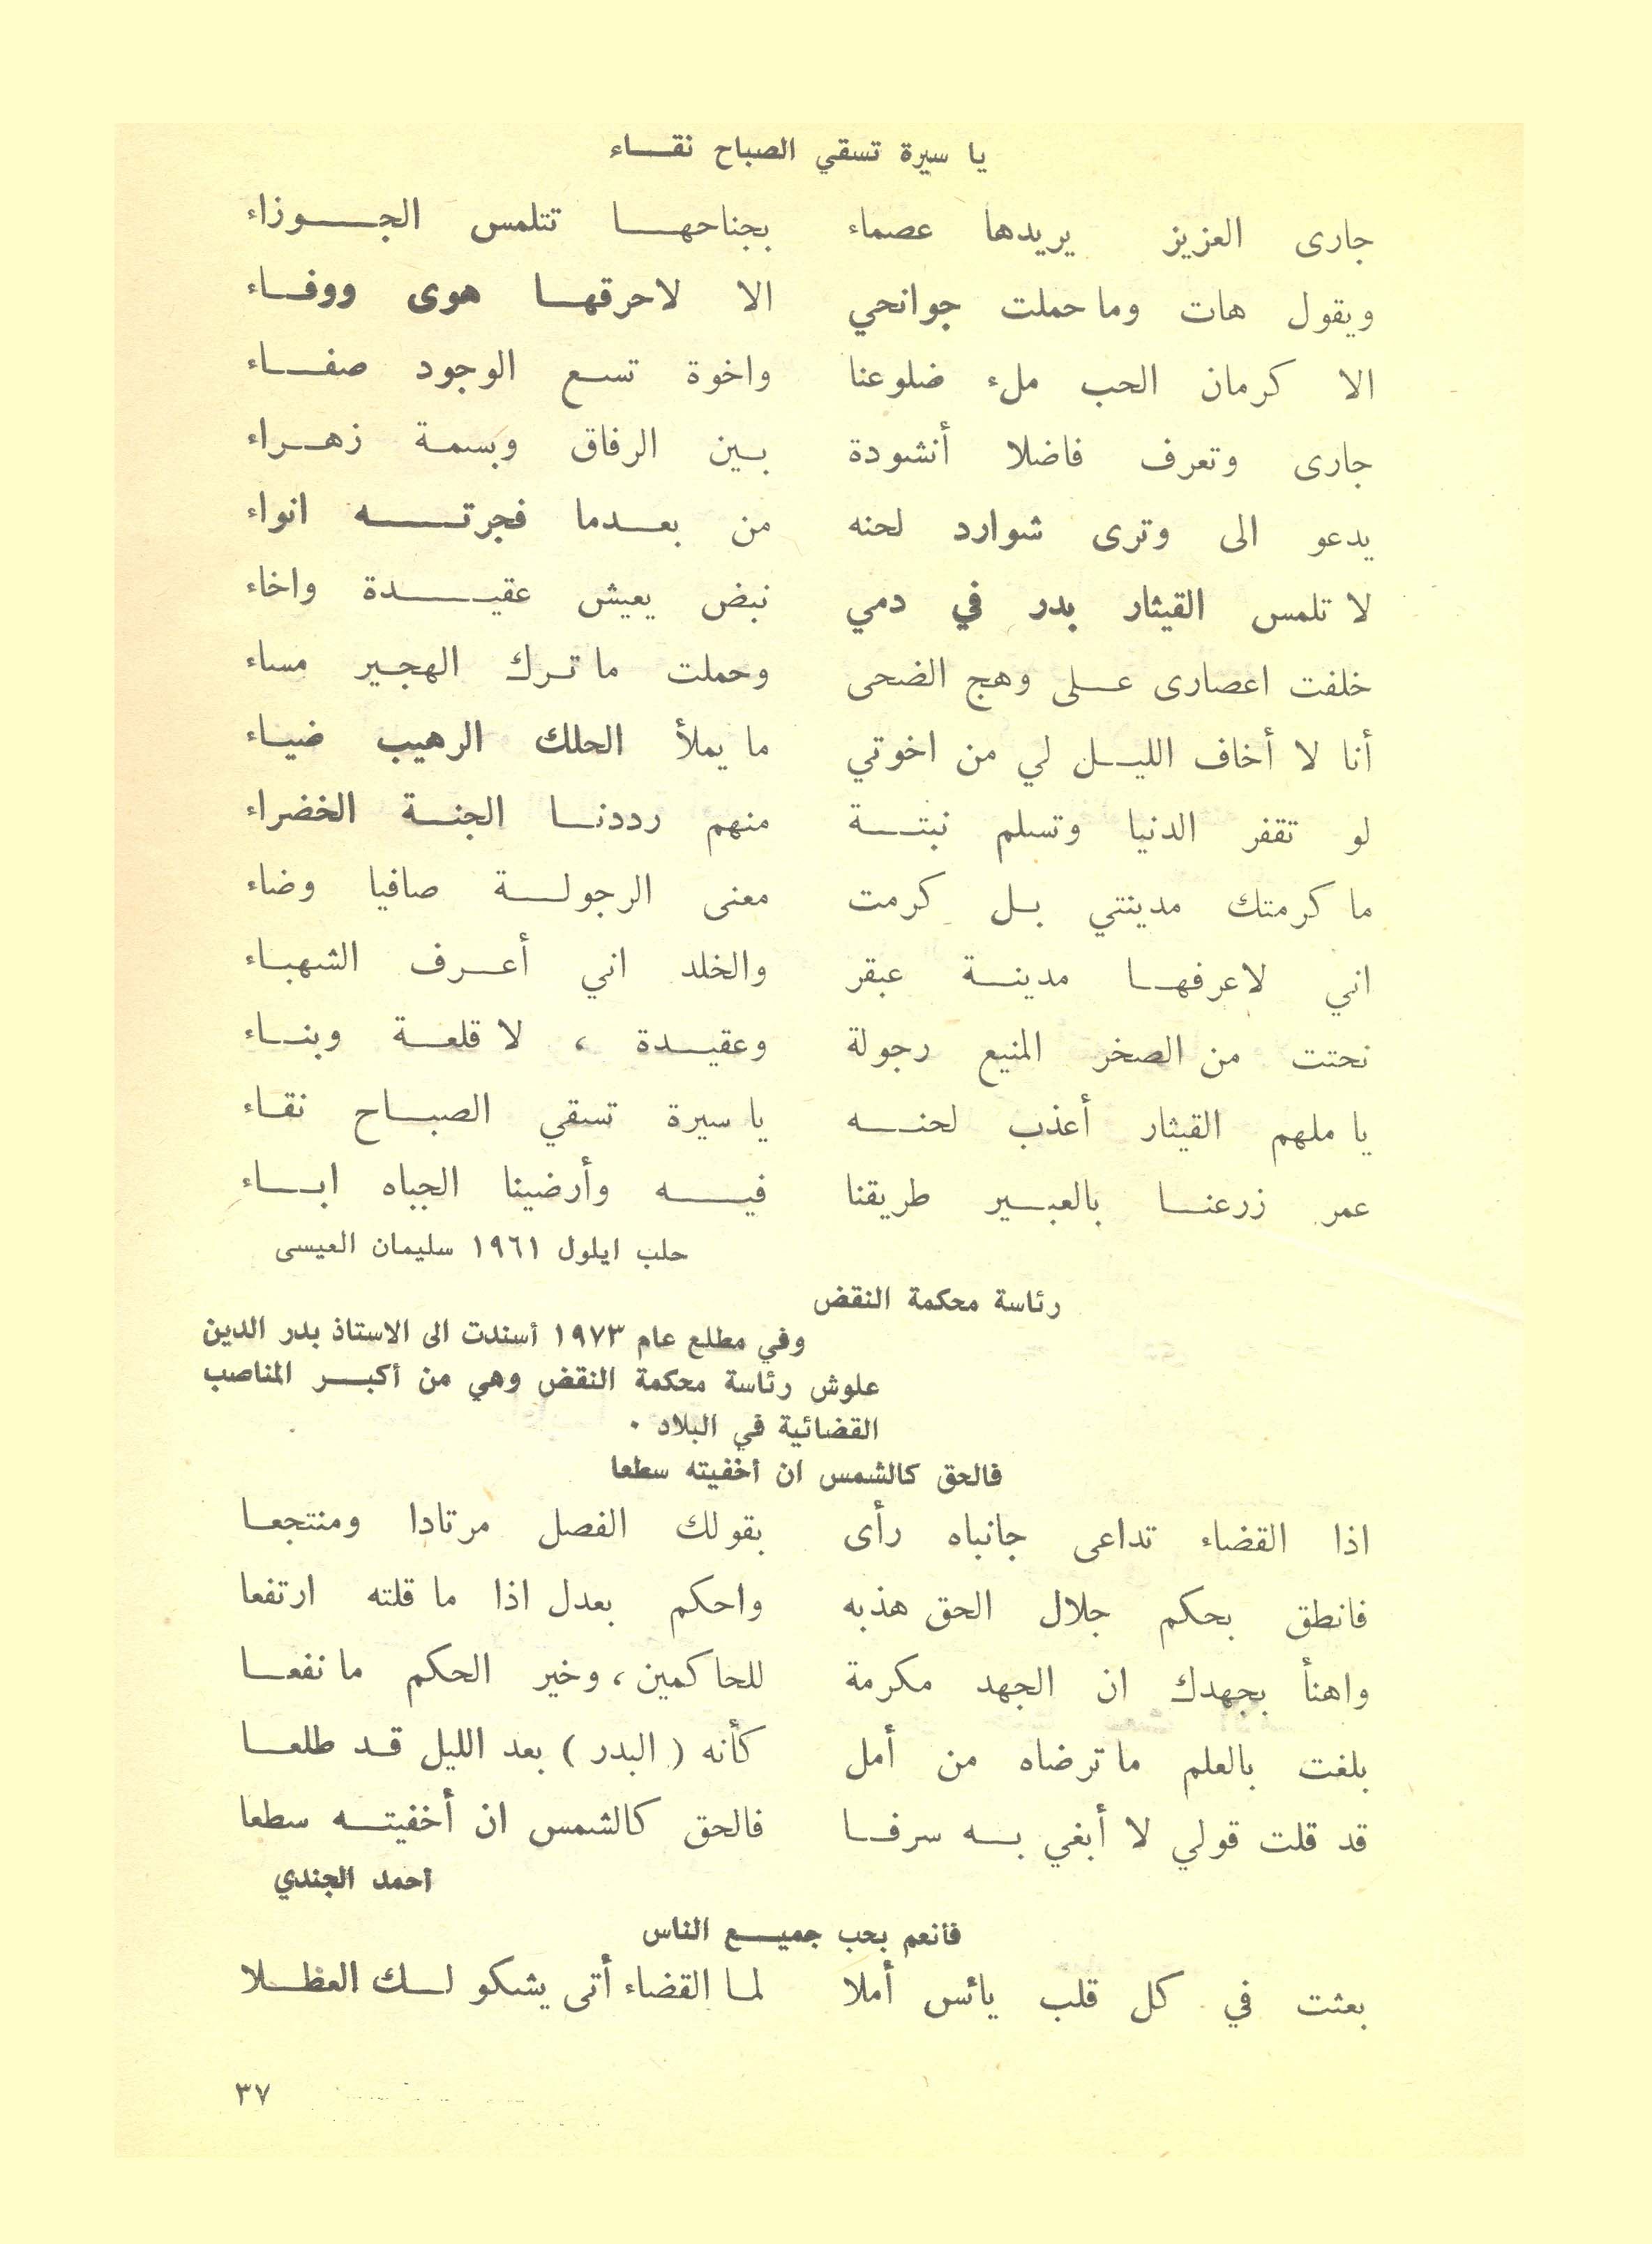 يا سيرة تسقي الصباح نقاء
جارى العزيز يريدها عصماء بجناحها تتلمس الجوزاء
ويقول هات وما حملت جوانحي الا لاحرقها هوى ووفاء
الا كرمان الحب ملء ضلوعنا واخوة تسع الوجود صفاء
جارى وتعرف فاضلا أنشودة بين الرفاق وبسمة زهراء
يدعو الى وترى شوارد لحنه من بعدما فجرته انواء
لا تلمس القيثار بدر في دمي نبض يعيش عقيدة واخاء
خلفت اعصارى على وهج الضحى وحملت ما ترك الهجير مساء
أنا لا أخاف الليل لي من اخوتي ما يملأ الحلك الرهيب ضياء
لو تقفر الدنيا وتسلم نبتة منهم رددنا الجنة الخضراء
ما كرمتك مدينتي بل كرمت معنى الرجولة صافيا وضاء
اني لاعرفها مدينة عبقر والخلد اني أعرف الشهباء
نحتت من الصخر المنيع رجولة وعقيدة ، لا قلعة وبناء
يا ملهم القيثار أعذب لحنه يا سيرة تسقي الصباح نقاء
عمر زرعنا بالعبير طريقنا فيه وأرضينا الجباه اباء
حلب ايلول ١٩٦١ سليمان العيسى
رئاسة محكمة النقض
وفي مطلع عام ١٩٧٣ أسندت الى الاستاذ بدر الدين
علوش رئاسة محكمة النقض وهي من أكبر المناصب
القضائية في البلاد ٠
فالحق كالشمس ان أخفيته سطعا
اذا القضاء تداعى جانباه رأى بقولك الفصل مرتادا ومنتجعا
فانطق بحكم جلال الحق هذبه واحكم بعدل اذا ما قلته ارتفعا
واهنأ بجهدك ان الجهد مكرمة للحاكمين ، وخير الحكم ما نفعا
بلغت بالعلم ما ترضاه من أمل كأنه ( البدر ) بعد الليل قد طلعا
قد قلت قولي لا أبغي به سرفا فالحق كالشمس ان أخفيته سطعا
احمد الجندي
فأنعم بحب جميع الناس
بعثت في كل قلب يائس أملا لما القضاء أتى يشكو لك العطلا
٣٧